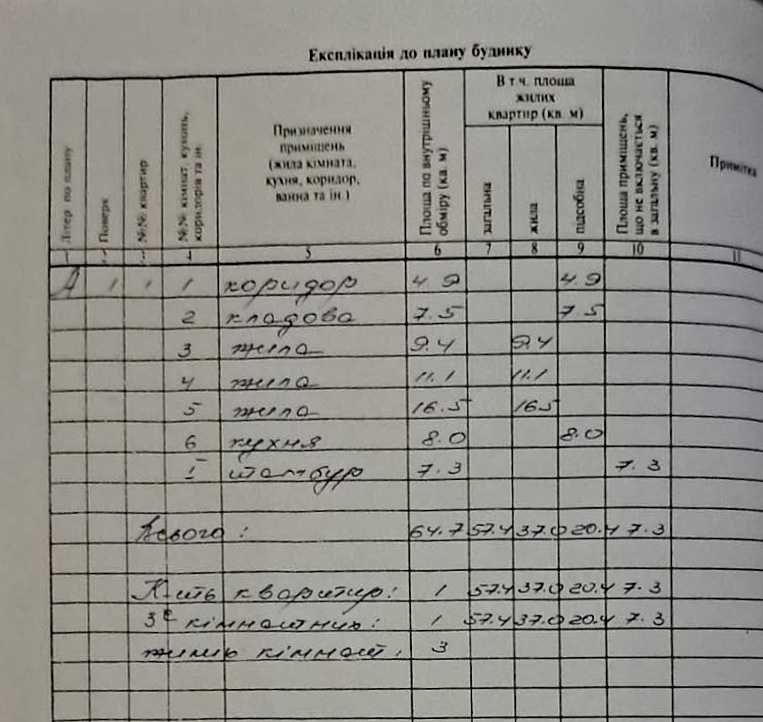 Експлікація до плану будинку
Літер по плану | Поверх | №№ квартир | №№ кімнат, кухонь, коридорів та ін. | Призначення приміщень (жила кімната, кухня, коридор, ванна та ін.) | Площа по внутрішньому обміру (кв. м) | В т.ч. площа жилих квартир (кв. м) | загальна | жила | підсобна | Площа приміщень, що не включається в загальну (кв. м) | Примітка
1 2 3 4 5 6 7 8 9 10 11
А 1 1 1 коридор 4.9 4.9
2 кладова 7.5 7.5
3 жила 9.4 9.4
4 жила 11.1 11.1
5 жила 16.5 16.5
6 кухня 8.0 8.0
I тамбур 7.3 7.3
Всього: 64.7 57.4 37.0 20.4 7.3
К-ть квартир: 1 57.4 37.0 20.4 7.3
3х кімнатних: 1 57.4 37.0 20.4 7.3
жилих кімнат: 3